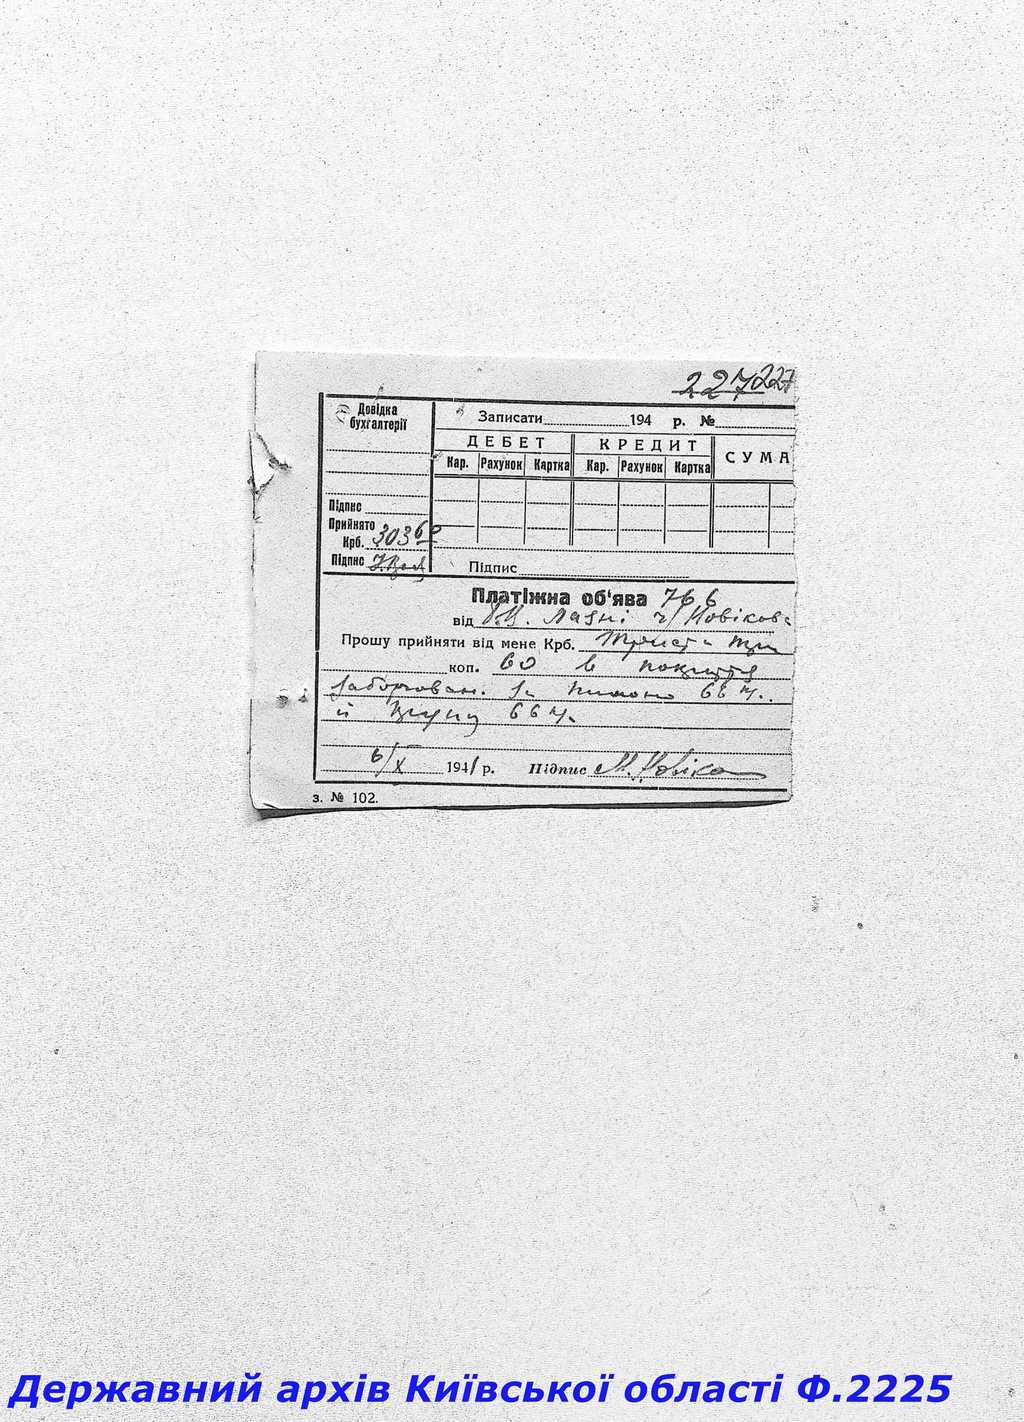 227 227
Довідка бухгалтерії
Записати 194 р. №
ДЕБЕТ КРЕДИТ СУМА
Кар. Рахунок Картка Кар. Рахунок Картка
Підпис
Прийнято
Крб. 303 60
Підпис
Підпис
Платіжна об'ява 766
від лазні ч/ Новікова
Прошу прийняти від мене Крб. Триста три
коп. 60 в покриття
заборгован. за 66 ч.
й 66 ч.
6/X 1941 р. Підпис М. Новіков
з. № 102.
Державний архів Київської області Ф.2225